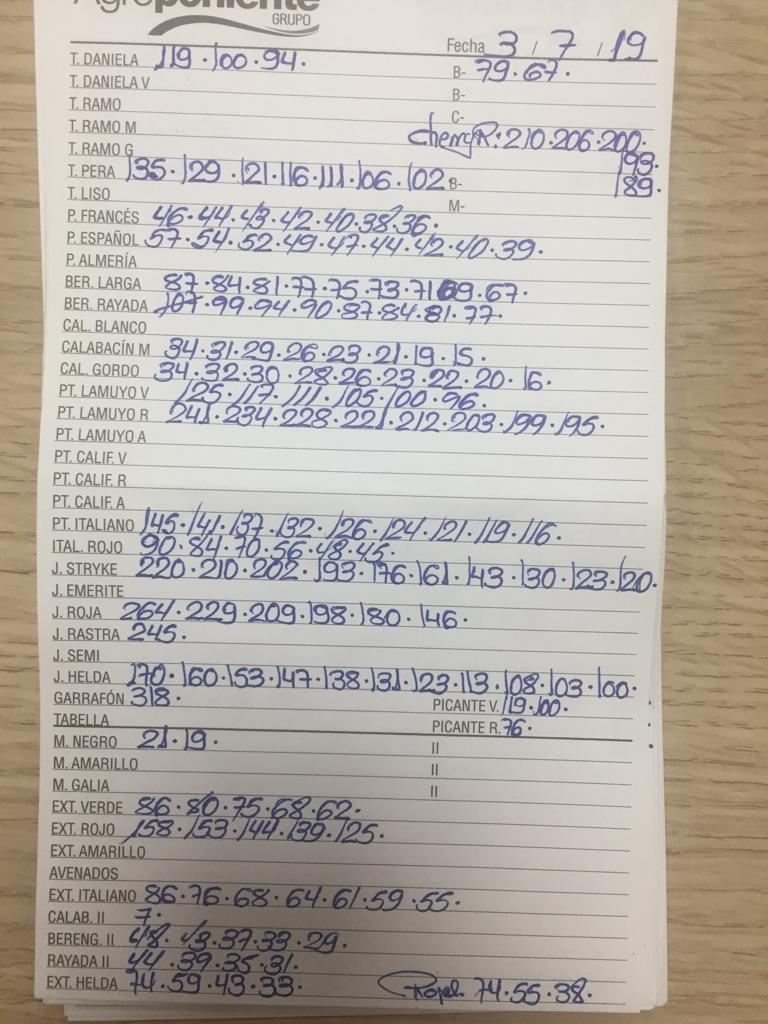 Agroponiente
GRUPO
Fecha 3 / 7 / 19
T. DANIELA 119·100·94· B- 79·67·
T. DANIELA V B-
T. RAMO C-
T. RAMO M CherryR: 210·206·200·
T. RAMO G 193·
T. PERA 135·129·121·116·111·106·102 B- 189·
T. LISO M-
P. FRANCÉS 46·44·43·42·40·38·36·
P. ESPAÑOL 57·54·52·49·47·44·42·40·39·
P. ALMERÍA
BER. LARGA 87·84·81·77·75·73·71·69·67·
BER. RAYADA 107·99·94·90·87·84·81·77·
CAL. BLANCO
CALABACÍN M 34·31·29·26·23·21·19·15·
CAL. GORDO 34·32·30·28·26·23·22·20·16·
PT. LAMUYO V 125·117·111·105·100·96·
PT. LAMUYO R 241·234·228·221·212·203·199·195·
PT. LAMUYO A
PT. CALIF. V
PT. CALIF. R
PT. CALIF. A
PT. ITALIANO 145·141·137·132·126·124·121·119·116·
ITAL. ROJO 90·84·70·56·48·45·
J. STRYKE 220·210·202·193·176·161·143·130·123·120·
J. EMERITE
J. ROJA 264·229·209·198·180·146·
J. RASTRA 245·
J. SEMI
J. HELDA 170·160·153·147·138·131·123·113·108·103·100·
GARRAFÓN 318· PICANTE V. 119·100·
TABELLA PICANTE R. 76·
M. NEGRO 21·19· II
M. AMARILLO II
M. GALIA II
EXT. VERDE 86·80·75·68·62·
EXT. ROJO 158·153·144·139·125·
EXT. AMARILLO
AVENADOS
EXT. ITALIANO 86·76·68·64·61·59·55·
CALAB. II 7·
BERENG. II 48·43·37·33·29·
RAYADA II 44·39·35·31·
EXT. HELDA 74·59·43·33· 74·55·38·